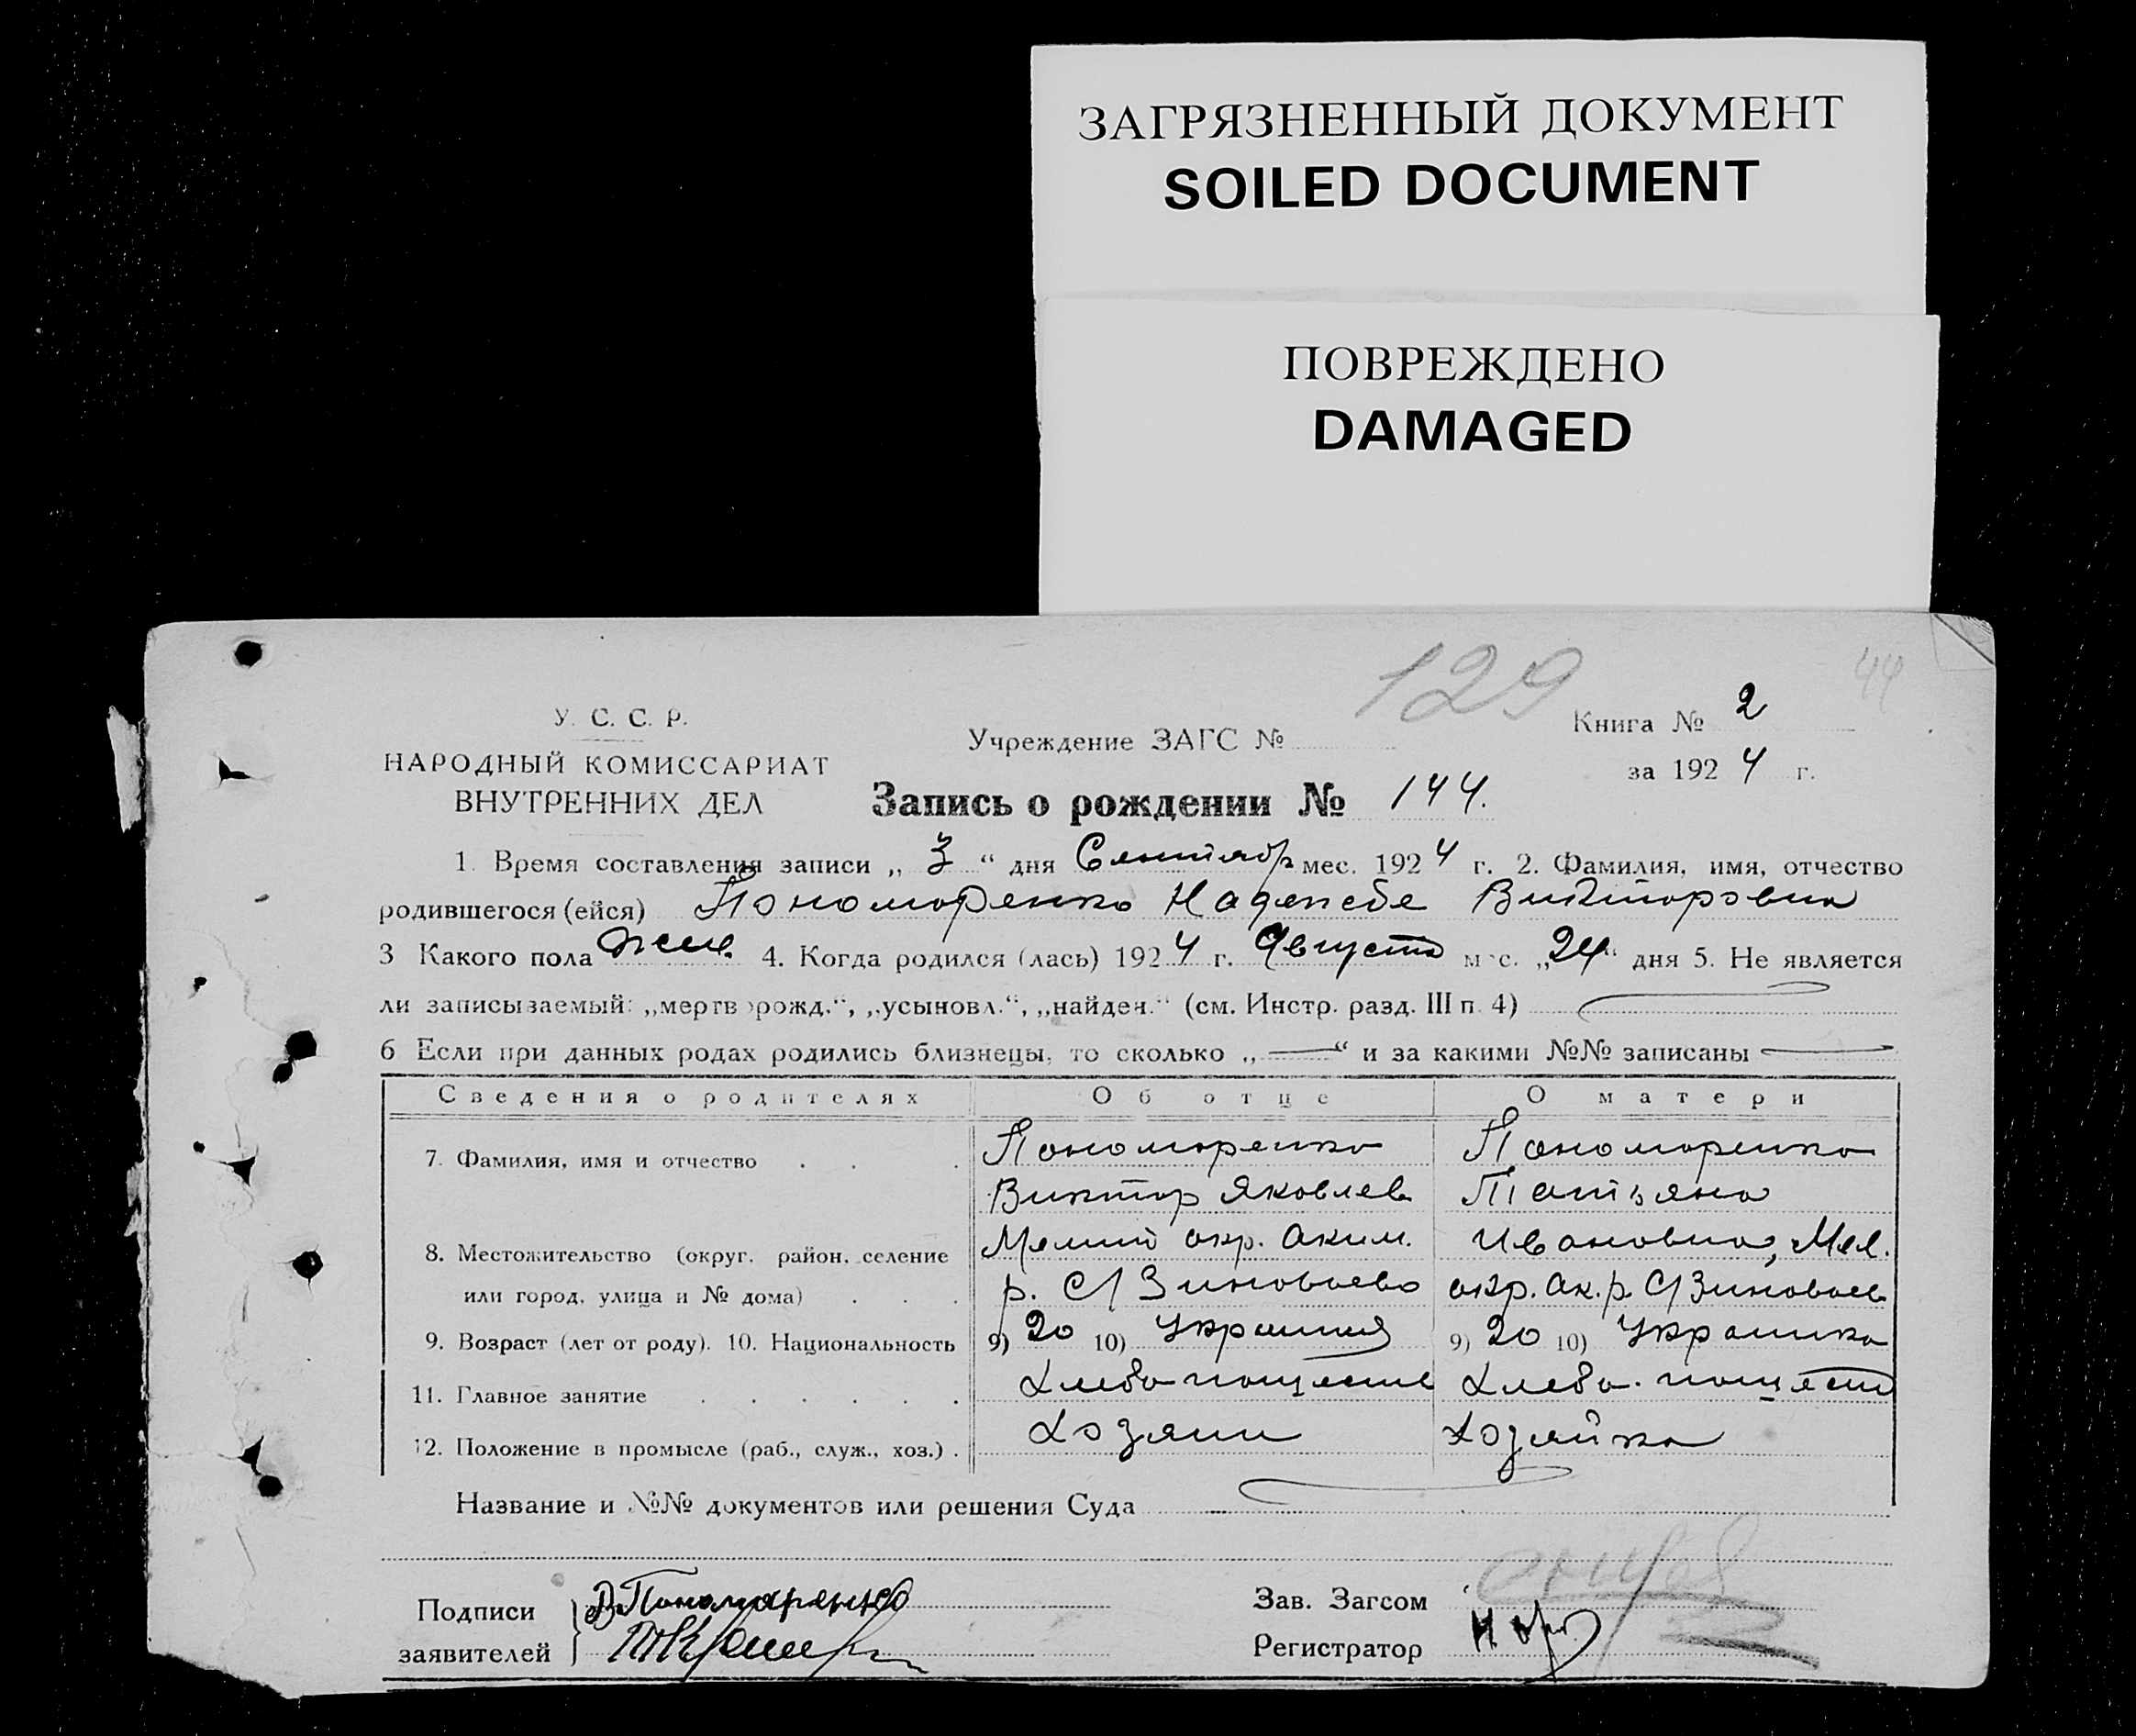 ЗАГРЯЗНЕННЫЙ ДОКУМЕНТ
SOILED DOCUMENT
ПОВРЕЖДЕНО
DAMAGED
129
44
У. С. С. Р.
НАРОДНЫЙ КОМИССАРИАТ
ВНУТРЕННИХ ДЕЛ
Учреждение ЗАГС №
Книга № 2
за 1924 г.
Запись о рождении № 144.
1. Время составления записи „ 3 “ дня Сентябр мес. 1924 г. 2. Фамилия, имя, отчество
родившегося (ейся) Пономоренко Надежде Викторовна
3 Какого пола жен. 4. Когда родился (лась) 1924 г. Августа мес. „24“ дня 5. Не является
ли записываемый: „мертворожд.“, „усыновл.“, „найден.“ (см. Инстр. разд. III п. 4)
6 Если при данных родах родились близнецы, то сколько „ — “ и за какими №№ записаны —
Сведения о родителях Об отце О матери
7. Фамилия, имя и отчество Пономоренко Пономоренко
Виктор Яковлев Татьяна
8. Местожительство (округ, район, селение Мелит окр. Аким. Ивановна, Мел.
или город, улица и № дома) р. С/ Зиновьево окр. Ак. р. С/ Зиновьев
9. Возраст (лет от роду). 10. Национальность 9) 20 10) Украинец 9) 20 10) Украинка
11. Главное занятие Хлебопащест Хлебо-пащест
12. Положение в промысле (раб., служ., хоз.) Хозяин Хозяйка
Название и №№ документов или решения Суда
Подписи В. Пономаренко Зав. Загсом
заявителей Регистратор